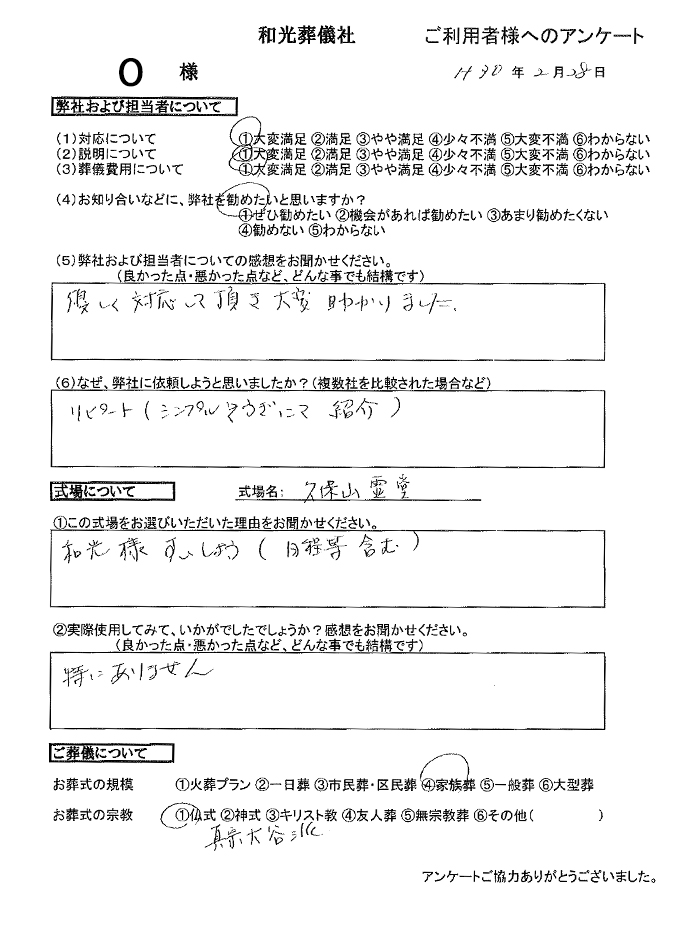 和光葬儀社 ご利用者様へのアンケート
O 様 H30年2月28日
弊社および担当者について
(1)対応について ①大変満足 ②満足 ③やや満足 ④少々不満 ⑤大変不満 ⑥わからない
(2)説明について ①大変満足 ②満足 ③やや満足 ④少々不満 ⑤大変不満 ⑥わからない
(3)葬儀費用について ①大変満足 ②満足 ③やや満足 ④少々不満 ⑤大変不満 ⑥わからない
(4)お知り合いなどに、弊社を勧めたいと思いますか?
①ぜひ勧めたい ②機会があれば勧めたい ③あまり勧めたくない
④勧めない ⑤わからない
(5)弊社および担当者についての感想をお聞かせください。
(良かった点・悪かった点など、どんな事でも結構です)
優しく対応して頂き大変助かりました。
(6)なぜ、弊社に依頼しようと思いましたか?(複数社を比較された場合など)
リピート(シンプルそうぎにて紹介)
式場について 式場名: 久保山霊堂
①この式場をお選びいただいた理由をお聞かせください。
和光様すいしょう(日程等含む)
②実際使用してみて、いかがでしたでしょうか?感想をお聞かせください。
(良かった点・悪かった点など、どんな事でも結構です)
特にありません
ご葬儀について
お葬式の規模 ①火葬プラン ②一日葬 ③市民葬・区民葬 ④家族葬 ⑤一般葬 ⑥大型葬
お葬式の宗教 ①仏式 ②神式 ③キリスト教 ④友人葬 ⑤無宗教葬 ⑥その他( )
真宗大谷派
アンケートご協力ありがとうございました。